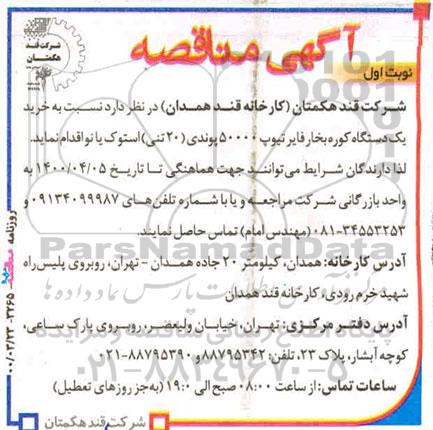 شرکت قند
هگمتان
آگهی مناقصه
نوبت اول
شرکت قند هگمتان (کارخانه قند همدان) در نظر دارد نسبت به خرید
یک دستگاه کوره بخار فایر تیوپ ۵۰۰۰۰ پوندی (۲۰ تنی) استوک یا نو اقدام نماید.
لذا دارندگان شرایط می‌توانند جهت هماهنگی تا تاریخ ۱۴۰۰/۰۴/۰۵ به
واحد بازرگانی شرکت مراجعه و یا با شماره تلفن‌های ۰۹۱۳۴۰۹۹۹۸۷ و
۰۸۱-۳۴۵۵۳۲۵۳ (مهندس امام) تماس حاصل نمایند.
آدرس کارخانه: همدان، کیلومتر ۲۰ جاده همدان - تهران، روبروی پلیس راه
شهید خرم رودی، کارخانه قند همدان
آدرس دفتر مرکزی: تهران، خیابان ولیعصر، روبروی پارک ساعی،
کوچه آبشار، پلاک ۲۳، تلفن: ۸۸۷۹۵۳۴۲ و ۸۸۷۹۵۳۹۰-۰۲۱
ساعات تماس: از ساعت ۰۸:۰۰ صبح الی ۱۹:۰۰ (به‌جز روزهای تعطیل)
شرکت قند هگمتان
روزنامه مناقصه ۳۲۶۵-۰۰/۰۳/۲۳
ParsNamadData
۰۲۱-۸۸۳۴۹۶۷۰-۵